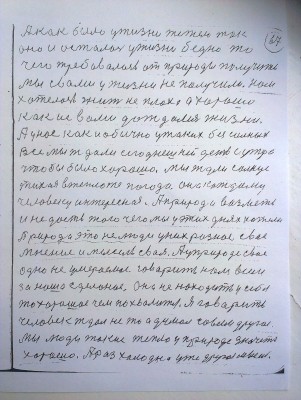 67
А как было у жизни тяжело так
оно и осталось у жизни бедно то
чего требовалось от природы получить
мы с вами у жизни не получило. нам
хотелось жить не плохо а хорошо
как и вами дождался жизни.
А у нас как и обычно у таких бессильных
все мы ждали сегодняшней день с утра
чтобы было хорошо, мы ждали солнце
тихая в теплоте погода, она каждому
человеку интересная. А природа возьмет
и не даст того чего мы у этих днях хотели
Природа это не люди у них разное свое
мнение и мысль своя. А у природе свое
одно не умераемое говорить нам всем
за наше сделанное. Она не находить у себя
то хорошое чем похвалить. Я говорить
человек ждал не то а думал совсем другое.
мы люди такие тепло у природе значить
хорошо. А раз холодно уже другое